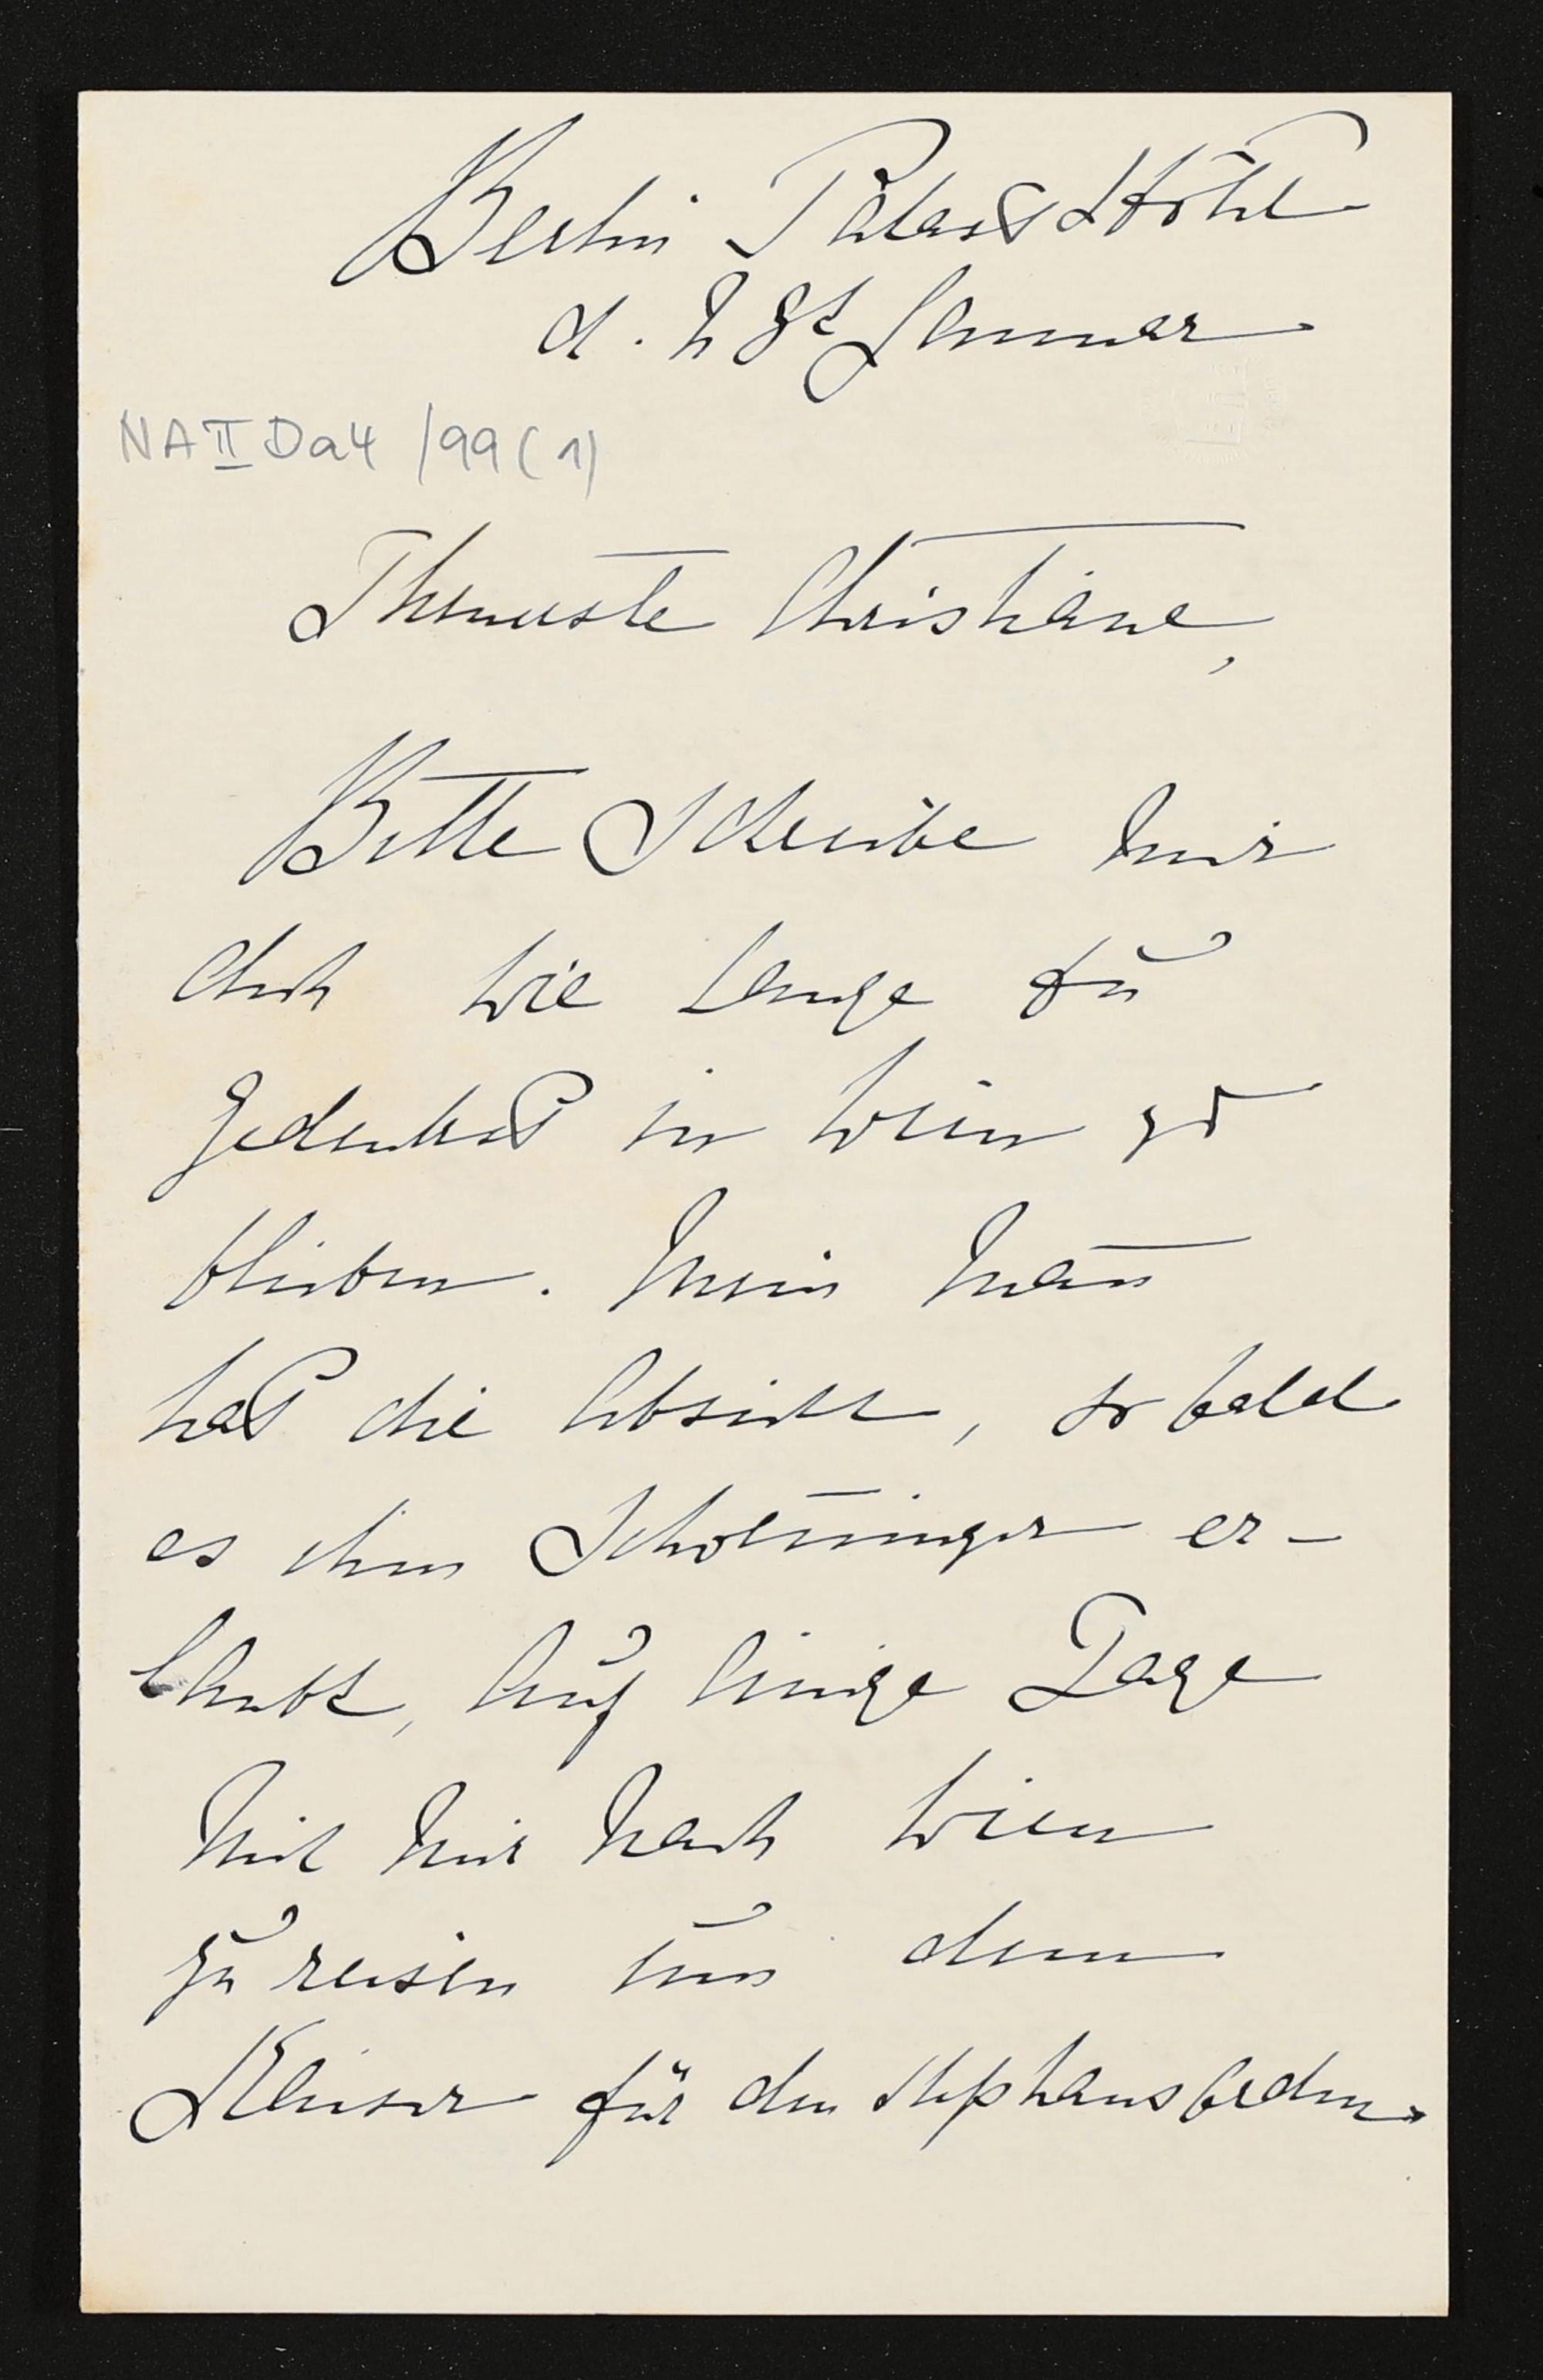 Berlin Palast Hôtel
d. 28t Januar
NA II Da4 /99 (1)
Theuerste Christiane,
Bitte schreibe mir
doch wie lange du
gedenkst in Wien zu
bleiben. Mein Mann
hat die Absicht, so bald
es ihm Schweninger er-
laubt, auf einige Tage
mit mir nach Wien
zu reisen um dem
Kaiser für den Stephansorden